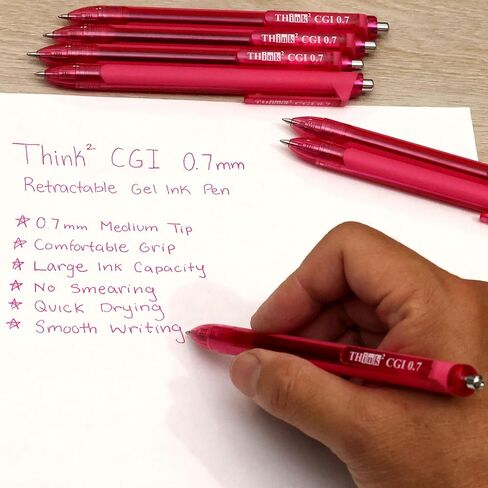 THink² CGI 0.7
THink² CGI 0.7
THink² CGI 0.7
Think² CGI 0.7mm
Retractable Gel Ink Pen
☆ 0.7mm Medium Tip
☆ Comfortable Grip
☆ Large Ink Capacity
☆ No Smearing
☆ Quick Drying
☆ Smooth Writing
THink² CGI 0.7